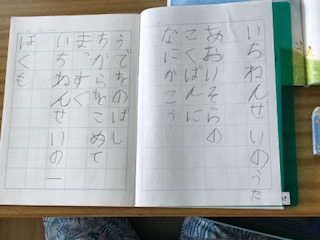 いちねんせいのうた
あおいそらの
こくばんに
なにかこう
うでをのばし
ちからをこめて
まっすぐ
いちねんせいの一
ぼくも